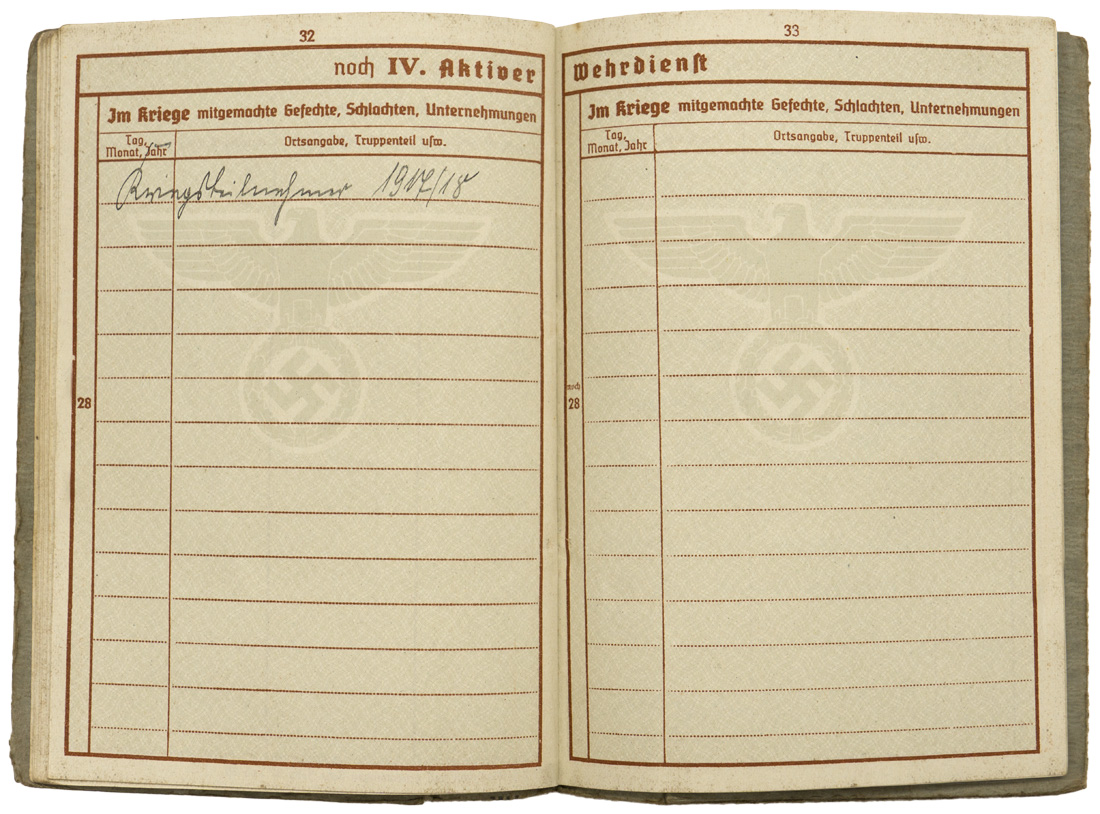 32
noch IV. Aktiver
Im Kriege mitgemachte Gefechte, Schlachten, Unternehmungen
Tag, Monat, Jahr
Ortsangabe, Truppenteil usw.
Kriegsteilnehmer 1917/18
28
33
Wehrdienst
Im Kriege mitgemachte Gefechte, Schlachten, Unternehmungen
Tag, Monat, Jahr
Ortsangabe, Truppenteil usw.
noch
28